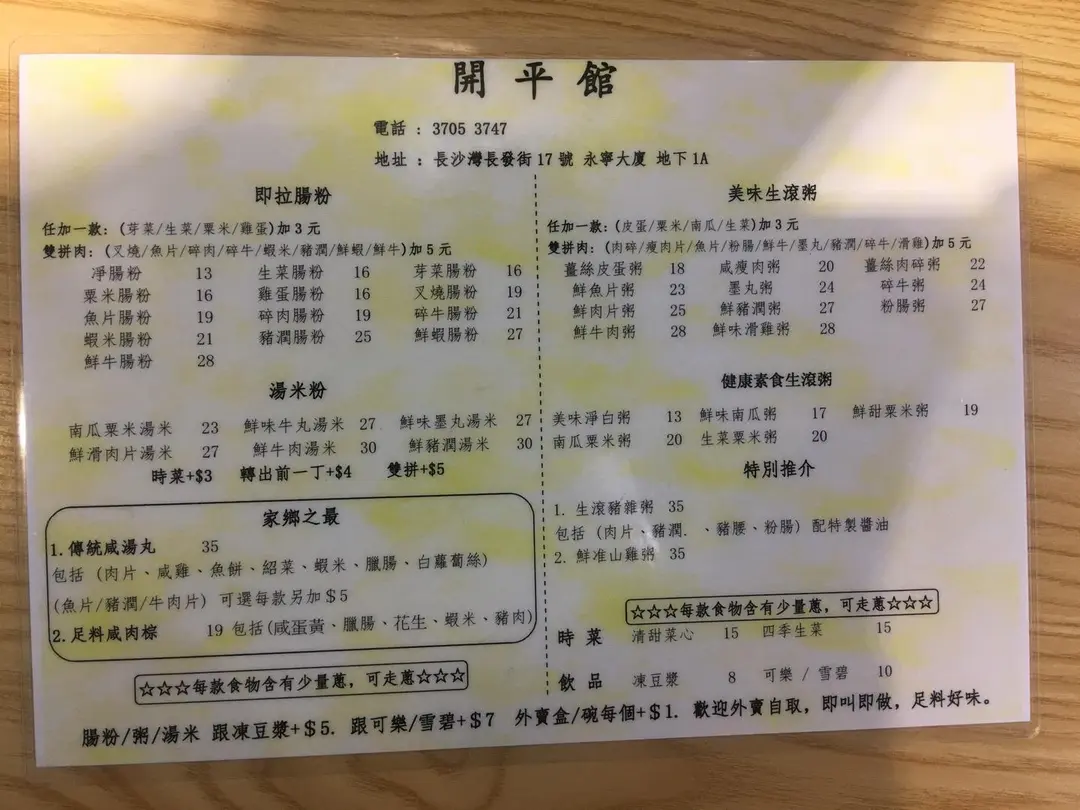 開平館
電話 : 3705 3747
地址 : 長沙灣長發街17號 永寧大廈 地下1A
即拉腸粉
任加一款: (芽菜/生菜/粟米/雞蛋)加3元
雙拼肉: (叉燒/魚片/碎肉/碎牛/蝦米/豬潤/鮮蝦/鮮牛)加5元
凈腸粉 13 生菜腸粉 16 芽菜腸粉 16
粟米腸粉 16 雞蛋腸粉 16 叉燒腸粉 19
魚片腸粉 19 碎肉腸粉 19 碎牛腸粉 21
蝦米腸粉 21 豬潤腸粉 25 鮮蝦腸粉 27
鮮牛腸粉 28
湯米粉
南瓜粟米湯米 23 鮮味牛丸湯米 27 鮮味墨丸湯米 27
鮮滑肉片湯米 27 鮮牛肉湯米 30 鮮豬潤湯米 30
時菜+$3 轉出前一丁+$4 雙拼+$5
家鄉之最
1.傳統咸湯丸 35
包括 (肉片、咸雞、魚餅、紹菜、蝦米、臘腸、白蘿蔔絲)
(魚片/豬潤/牛肉片) 可選每款另加$5
2.足料咸肉粽 19 包括(咸蛋黃、臘腸、花生、蝦米、豬肉)
☆☆☆每款食物含有少量蔥,可走蔥☆☆☆
美味生滾粥
任加一款:(皮蛋/粟米/南瓜/生菜)加3元
雙拼肉: (肉碎/瘦肉片/魚片/粉腸/鮮牛/墨丸/豬潤/碎牛/滑雞)加5元
薑絲皮蛋粥 18 咸瘦肉粥 20 薑絲肉碎粥 22
鮮魚片粥 23 墨丸粥 24 碎牛粥 24
鮮肉片粥 25 鮮豬潤粥 27 粉腸粥 27
鮮牛肉粥 28 鮮味滑雞粥 28
健康素食生滾粥
美味淨白粥 13 鮮味南瓜粥 17 鮮甜粟米粥 19
南瓜粟米粥 20 生菜粟米粥 20
特別推介
1. 生滾豬雜粥 35
包括 (肉片、豬潤.、豬腰、粉腸) 配特製醬油
2. 鮮准山雞粥 35
☆☆☆每款食物含有少量蔥,可走蔥☆☆☆
時菜 清甜菜心 15 四季生菜 15
飲品 凍豆漿 8 可樂 / 雪碧 10
腸粉/粥/湯米 跟凍豆漿+$5. 跟可樂/雪碧+$7 外賣盒/碗每個+$1. 歡迎外賣自取,即叫即做,足料好味。